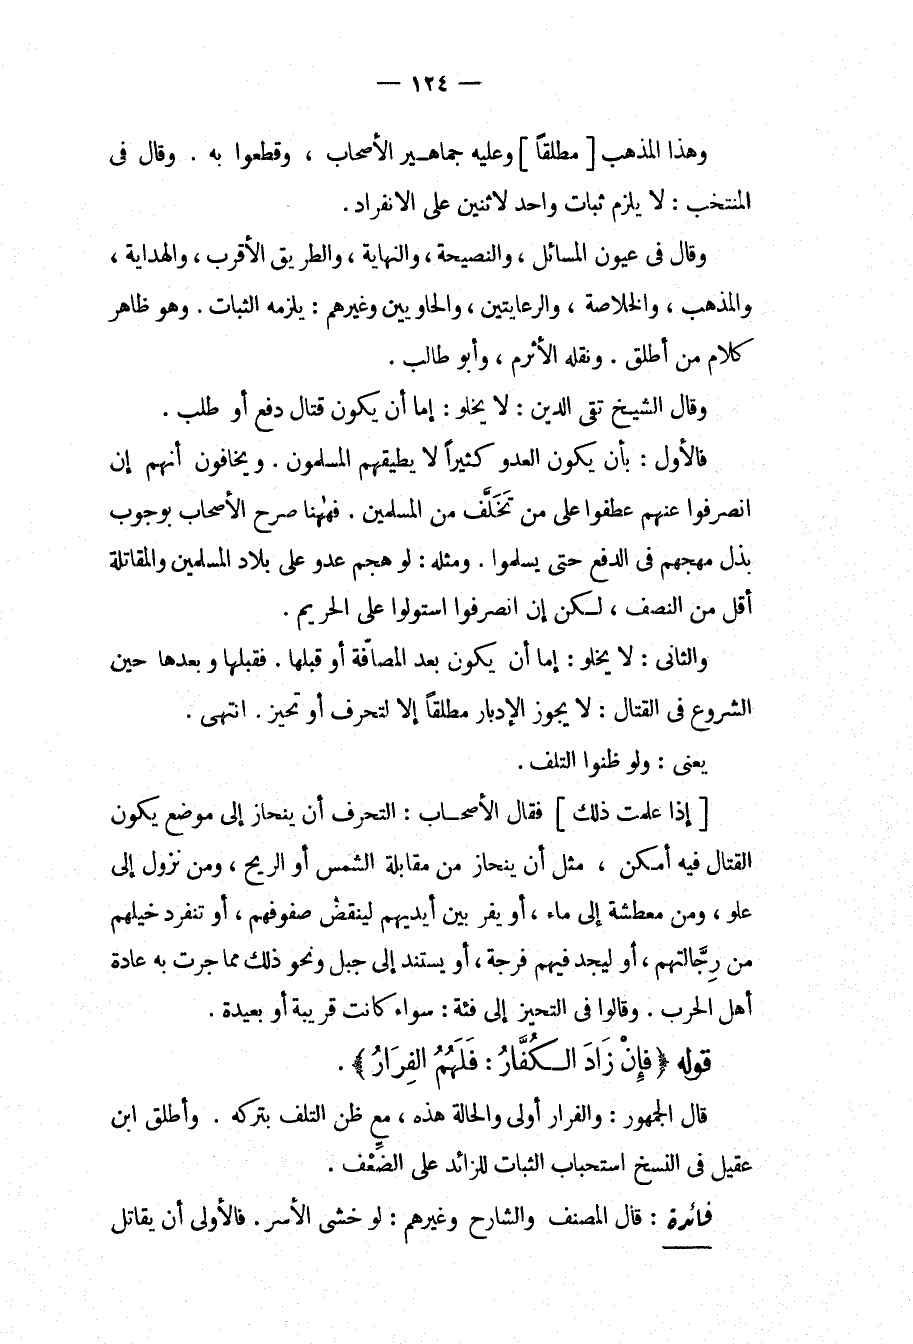 — ١٢٤ —
وهذا المذهب [ مطلقاً ] وعليه جماهير الأصحاب ، وقطعوا به . وقال فى
المنتخب : لا يلزم ثبات واحد لاثنين على الانفراد .
وقال فى عيون المسائل ، والنصيحة ، والنهاية ، والطريق الأقرب ، والهداية ،
والمذهب ، والخلاصة ، والرعايتين ، والحاويين وغيرهم : يلزمه الثبات . وهو ظاهر
كلام من أطلق . ونقله الأثرم ، وأبو طالب .
وقال الشيخ تقى الدين : لا يخلو : إما أن يكون قتال دفع أو طلب .
فالأول : بأن يكون العدو كثيراً لا يطيقهم المسلمون . ويخافون أنهم إن
انصرفوا عنهم عطفوا على من تَخَلَّف من المسلمين . فههنا صرح الأصحاب بوجوب
بذل مهجهم فى الدفع حتى يسلموا . ومثله : لو هجم عدو على بلاد المسلمين والمقاتلة
أقل من النصف ، لكن إن انصرفوا استولوا على الحريم .
والثانى : لا يخلو : إما أن يكون بعد المصافّة أو قبلها . فقبلها وبعدها حين
الشروع فى القتال : لا يجوز الإدبار مطلقاً إلا لتحرف أو تحيز . انتهى .
يعنى : ولو ظنوا التلف .
[ إذا علمت ذلك ] فقال الأصحاب : التحرف أن ينحاز إلى موضع يكون
القتال فيه أمكن ، مثل أن ينحاز من مقابلة الشمس أو الريح ، ومن نزول إلى
علو ، ومن معطشة إلى ماء ، أو يفر بين أيديهم لينقض صفوفهم ، أو تنفرد خيلهم
من رِجَّالتهم ، أو ليجد فيهم فرجة ، أو يستند إلى جبل ونحو ذلك مما جرت به عادة
أهل الحرب . وقالوا فى التحيز إلى فئة : سواء كانت قريبة أو بعيدة .
قوله ﴿ فإِنْ زَادَ الكُفَّارُ : فَلَهُمُ الفِرَارُ ﴾ .
قال الجمهور : والفرار أولى والحالة هذه ، مع ظن التلف بتركه . وأطلق ابن
عقيل فى النسخ استحباب الثبات للزائد على الضِّعْف .
فائدة : قال المصنف والشارح وغيرهم : لو خشى الأسر . فالأولى أن يقاتل